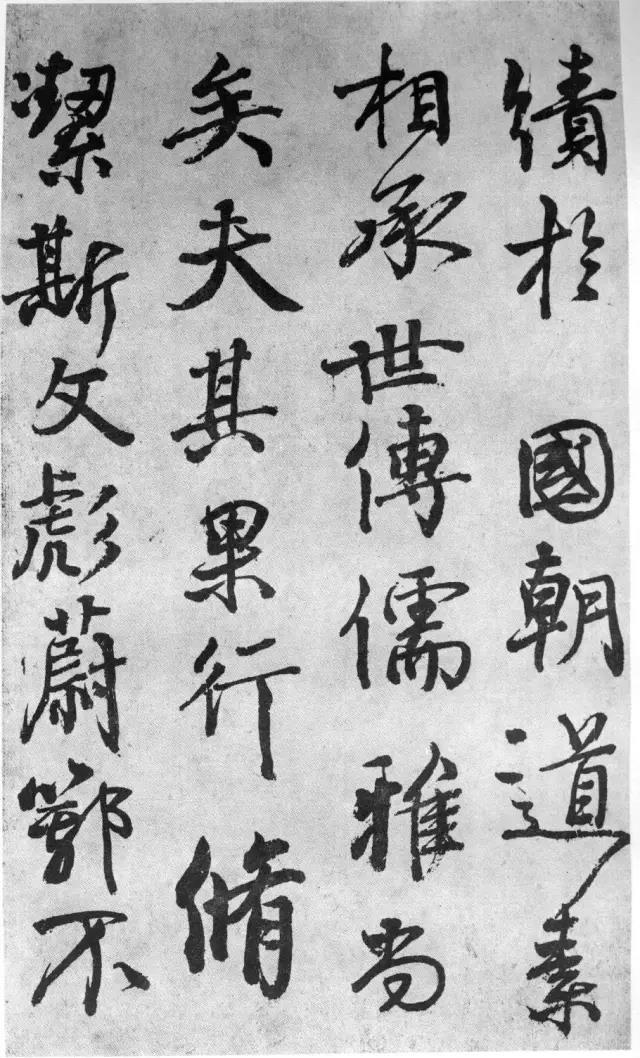 績於 國朝道素
相承世傳儒雅尚
矣夫其果行脩
潔斯文彪蔚鄂不